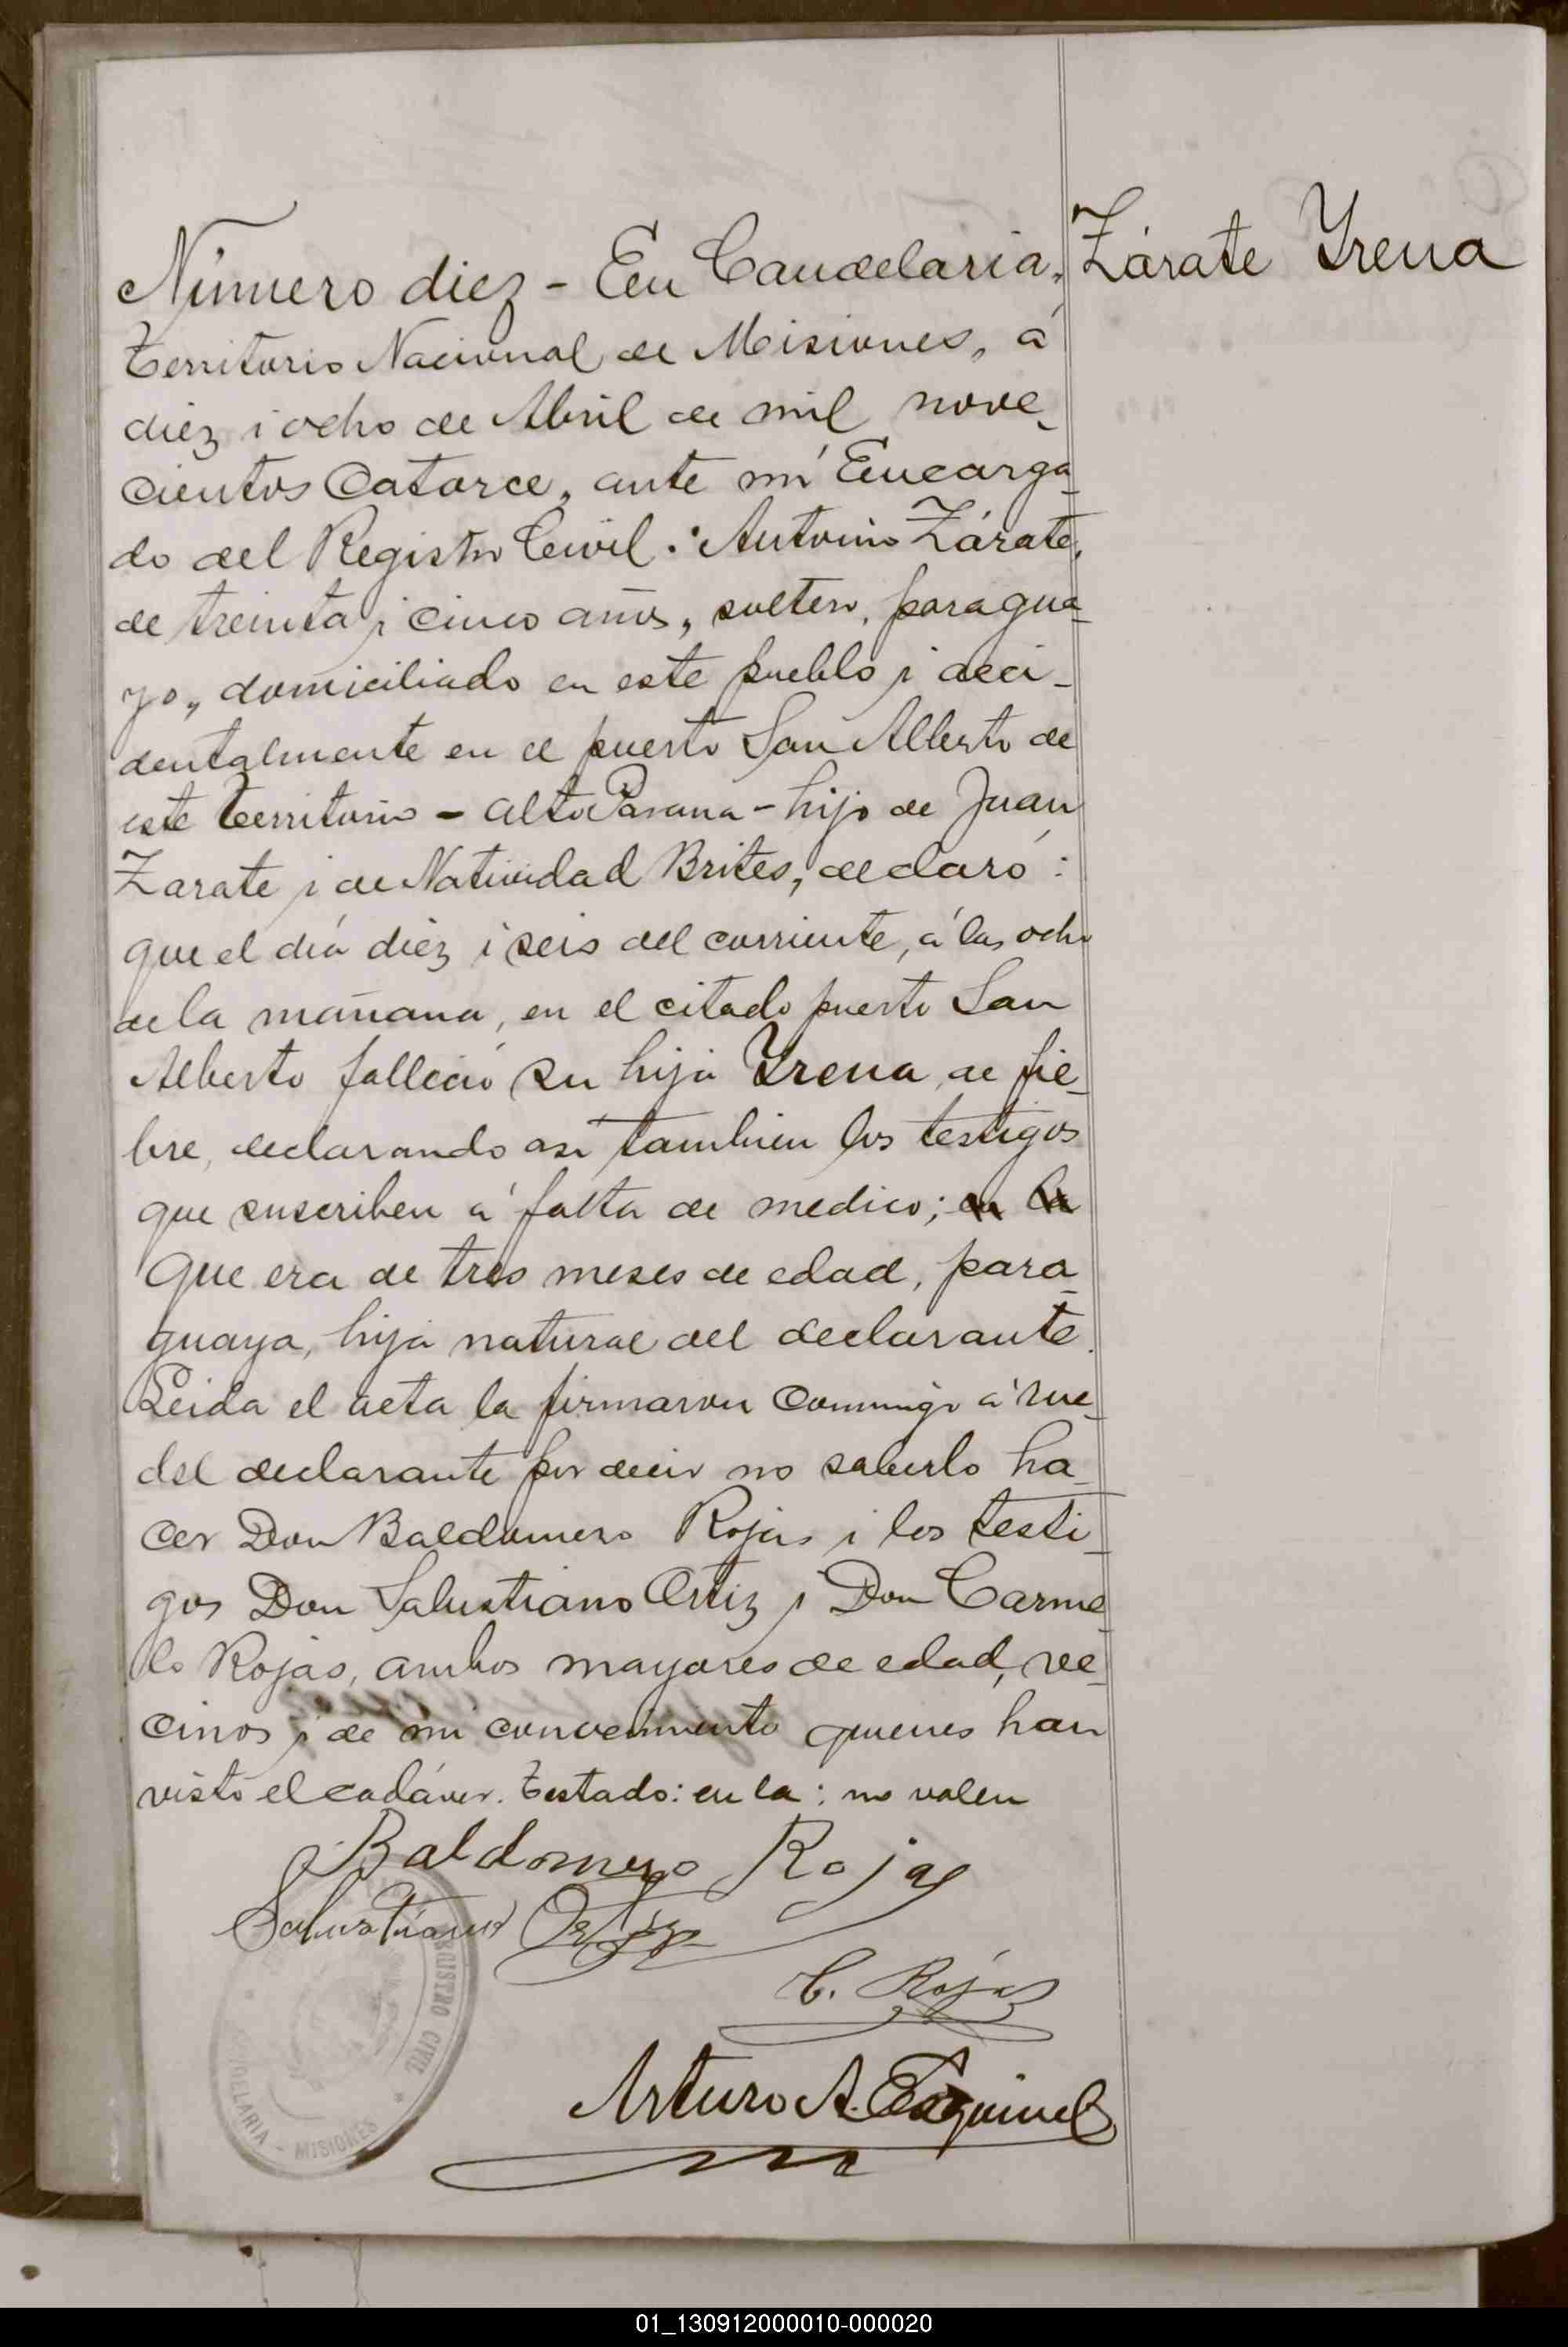 Número diez - En Candelaria,
Zárate Yrena
Territorio Nacional de Misiones, á
diez i ocho de Abril de mil nove-
cientos catorce, ante mí Encarga-
do del Registro Civil: Antonio Zárate,
de treinta i cinco años, soltero, paragua-
yo, domiciliado en este pueblo i acci-
dentalmente en el puerto San Alberto de
este territorio - alto Parana - hijo de Juan
Zarate i de Natividad Brites, declaró:
que el día diez i seis del corriente, á las ocho
de la mañana, en el citado puerto San
Alberto falleció su hija Yrena, de fie-
bre, declarando asi tambien los testigos
que suscriben á falta de medico; en la
que era de tres meses de edad, para-
guaya, hija natural del declarante.
Leida el acta la firmaron conmigo á rue-
del declarante por decir no saberlo ha-
cer Don Baldomero Rojas i los testi-
gos Don Salustiano Ortiz i Don Carme-
lo Rojas, ambos mayores de edad, ve-
cinos i de mi conocimiento quienes han
visto el cadáver. Testado: en la: no valen
Baldomero Rojas
Salustiano Ortiz
C. Rojas
Arturo A. Esquivel
REGISTRO CIVIL
CANDELARIA - MISIONES
01_130912000010-000020